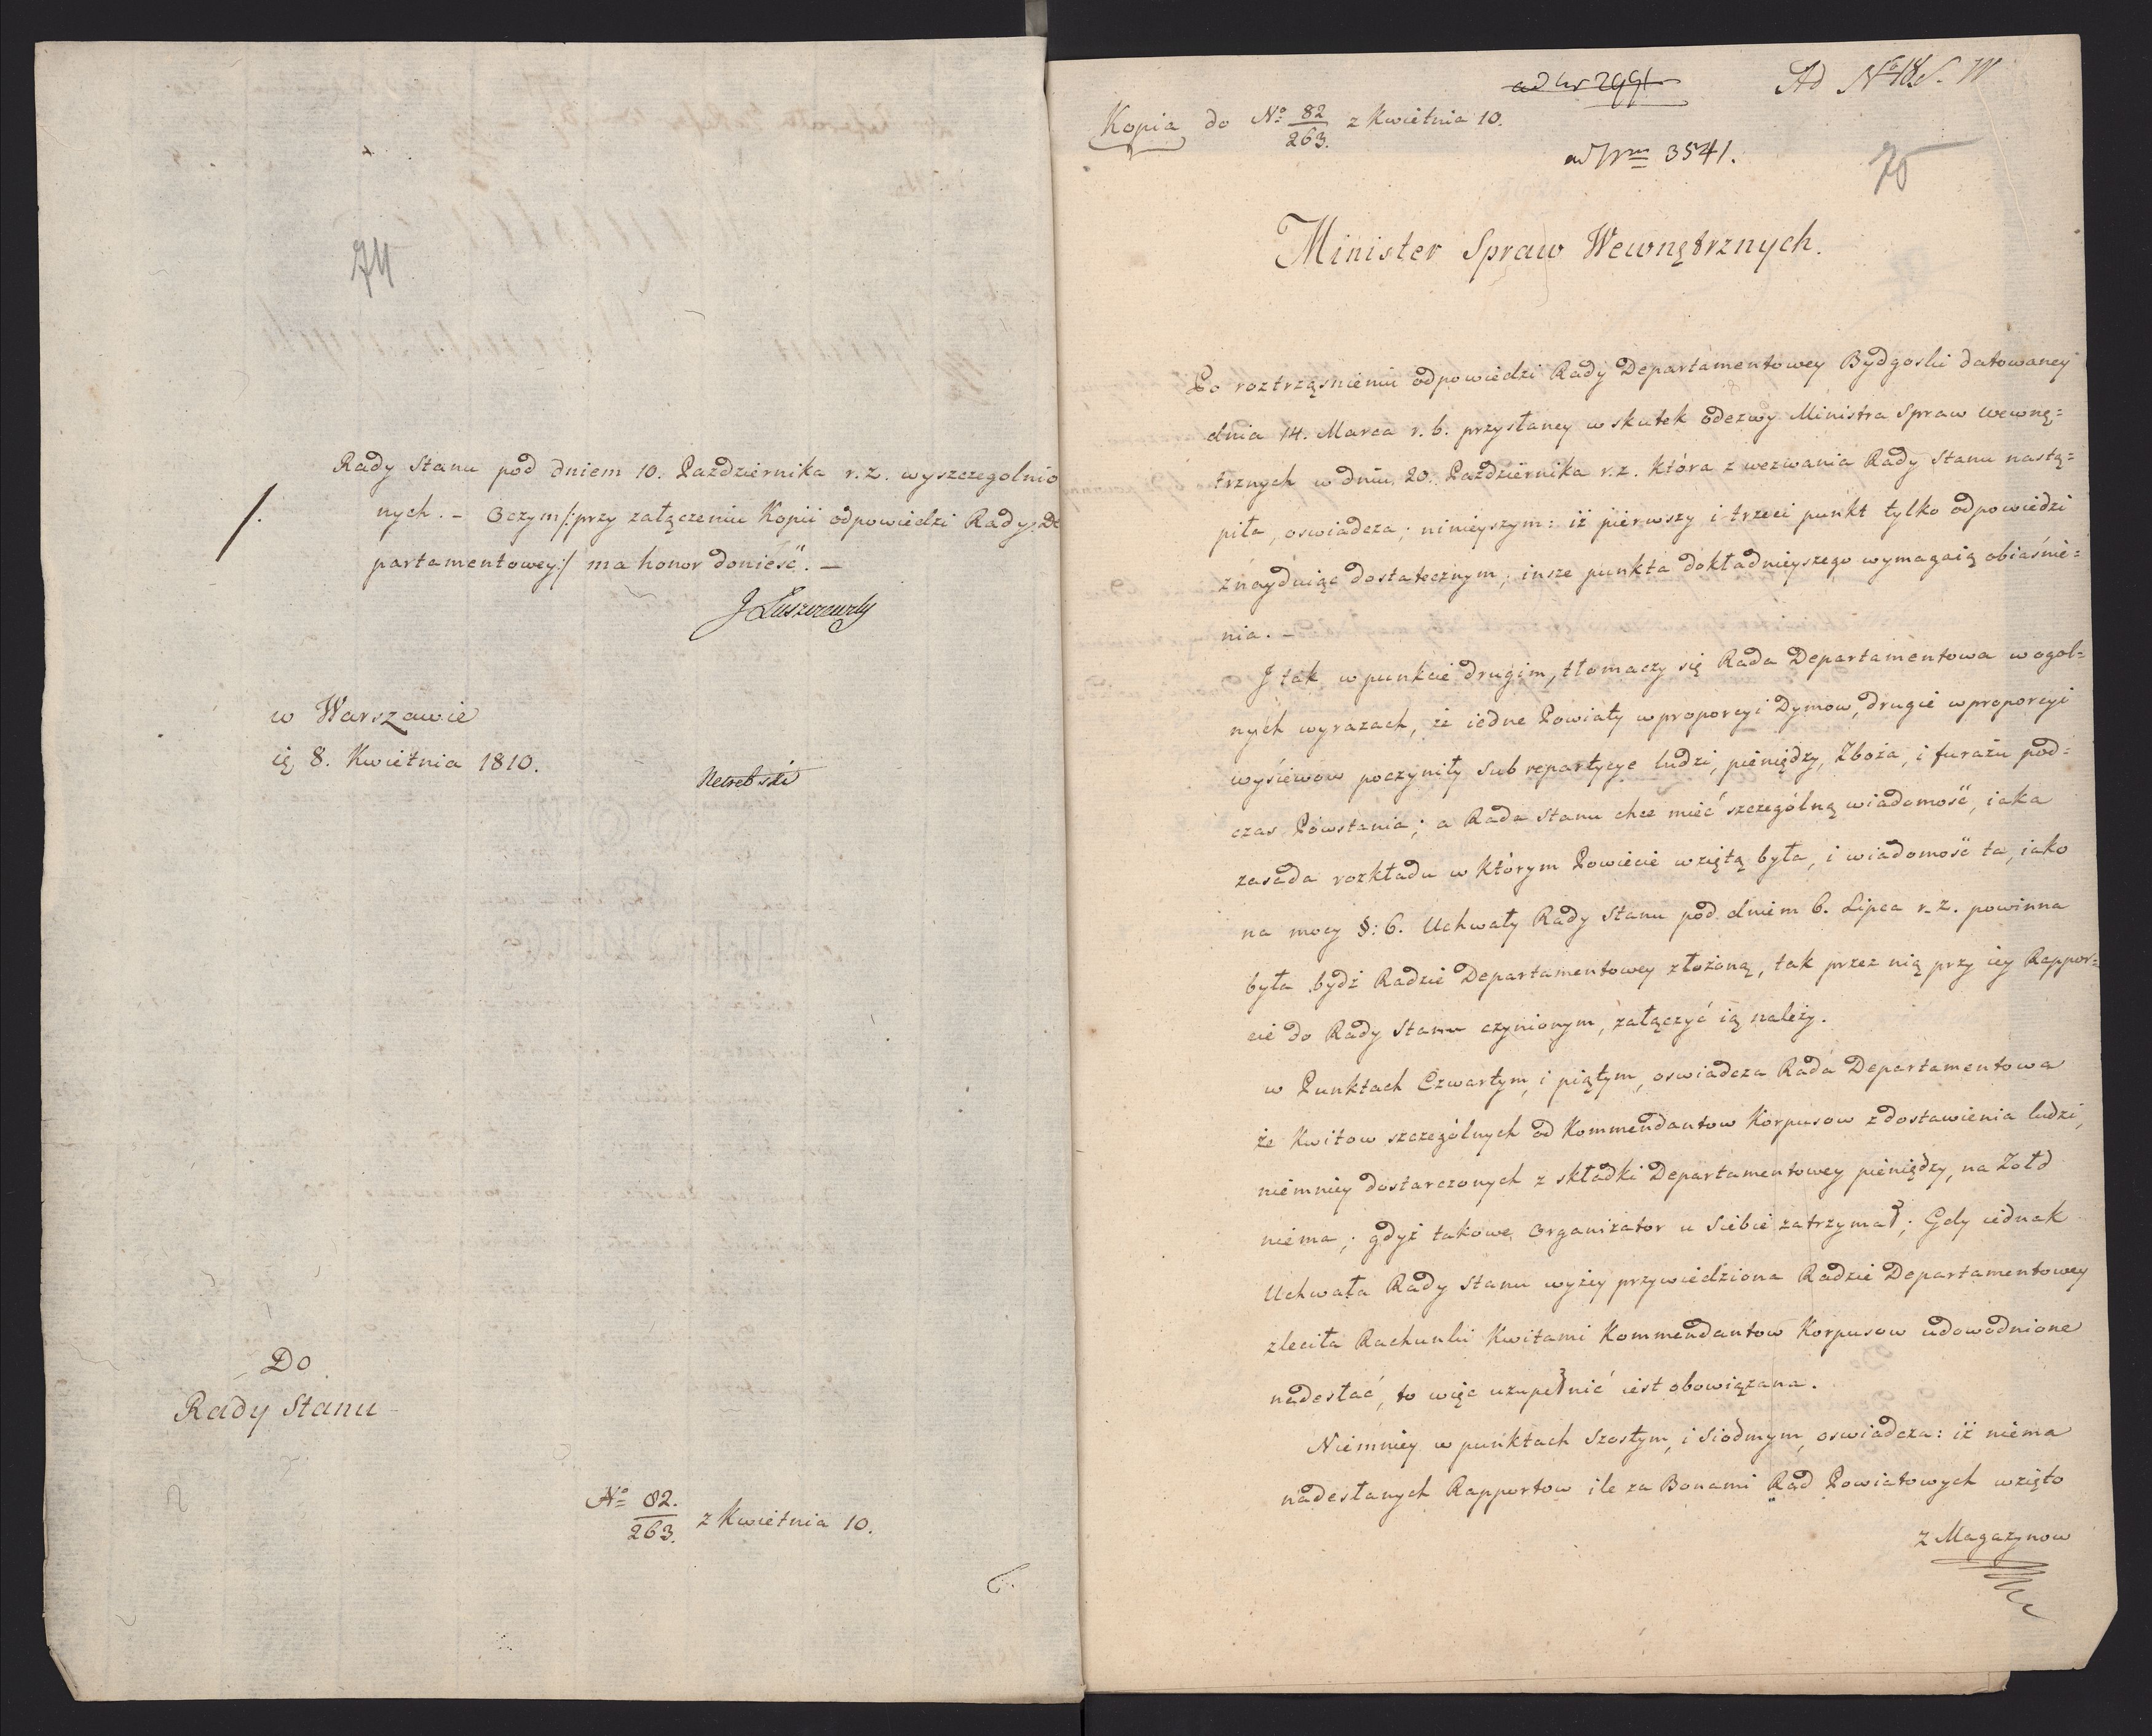 74
Rady Stanu pod dniem 10. Pazdziernika r. z. wyszczegolnio
nych. – O czym /: przy załączeniu Kopii odpowiedzi Rady De
partamentowey :/ ma honor donieść. –
J Łuszczewsky
w Warszawie
8. Kwietnia 1810.
Do
Rady Stanu
No 82./263. z Kwietnia 10.
ad Nr 2991
Ad No 18 S. W
Kopia do No 82/263. z Kwietnia 10.
ad Nrum 3541.
75
Minister Spraw Wewnętrznych.
Po roztrząsnieniu odpowiedzi Rady Departamentowey Bydgoski datowaney
dnia 14. Marca r. b. przysłaney w skutek odezwy Ministra Spraw wewnę=
trznych w dniu 20. Pazdziernika r. z. która z wezwania Rady Stanu nastą=
piła, oswiadcza; ninieyszym: iż pierwszy i trzeci punkt tylko odpowiedzi
znayduiąc dostatecznym, insze punkta dokładnieyszego wymagaią obiaśnie=
nia. –
J tak w punkcie drugim, tłomaczy się Rada Departamentowa w ogol=
nych wyrazach, że iedne Powiaty w proporcyi Dymow, drugie w proporcyi
wysiewow poczyniły Subrepartycye ludzi, pieniędzy, Zboża, i furażu pod=
czas Powstania; a Rada Stanu chce mieć szczególną wiadomość, iaka
zasada rozkładu w którym Powiecie wziętą była, i wiadomość ta, iako
na mocy §: 6. Uchwały Rady Stanu pod dniem 6. Lipca r. z. powinna
była bydź Radzie Departamentowey złożoną, tak przez nią przy iey Rappor=
cie do Rady Stanu czynionym, załączyć ią należy.
w Punktach Czwartym, i piątym, oswiadcza Rada Departamentowa
że Kwitow szczególnych od Kommendantow Korpusow z dostawienia ludzi,
niemniey dostarczonych z składki Departamentowey pieniędzy, na Żołd
niema; gdyż takowe Organizator u Siebie zatrzymał; Gdy iednak
Uchwała Rady Stanu wyżey przywiedziona Radzie Departamentowey
zleciła Rachunki Kwitami Kommendantow Korpusow udowodnione
nadesłać, to więc uzupełnić iest obowiązana.
Niemniey w punktach Szostym, i Siodmym, oswiadcza: iż niema
nadesłanych Rapportow ile za Bonami Rad Powiatowych wzięto
z Magazynow